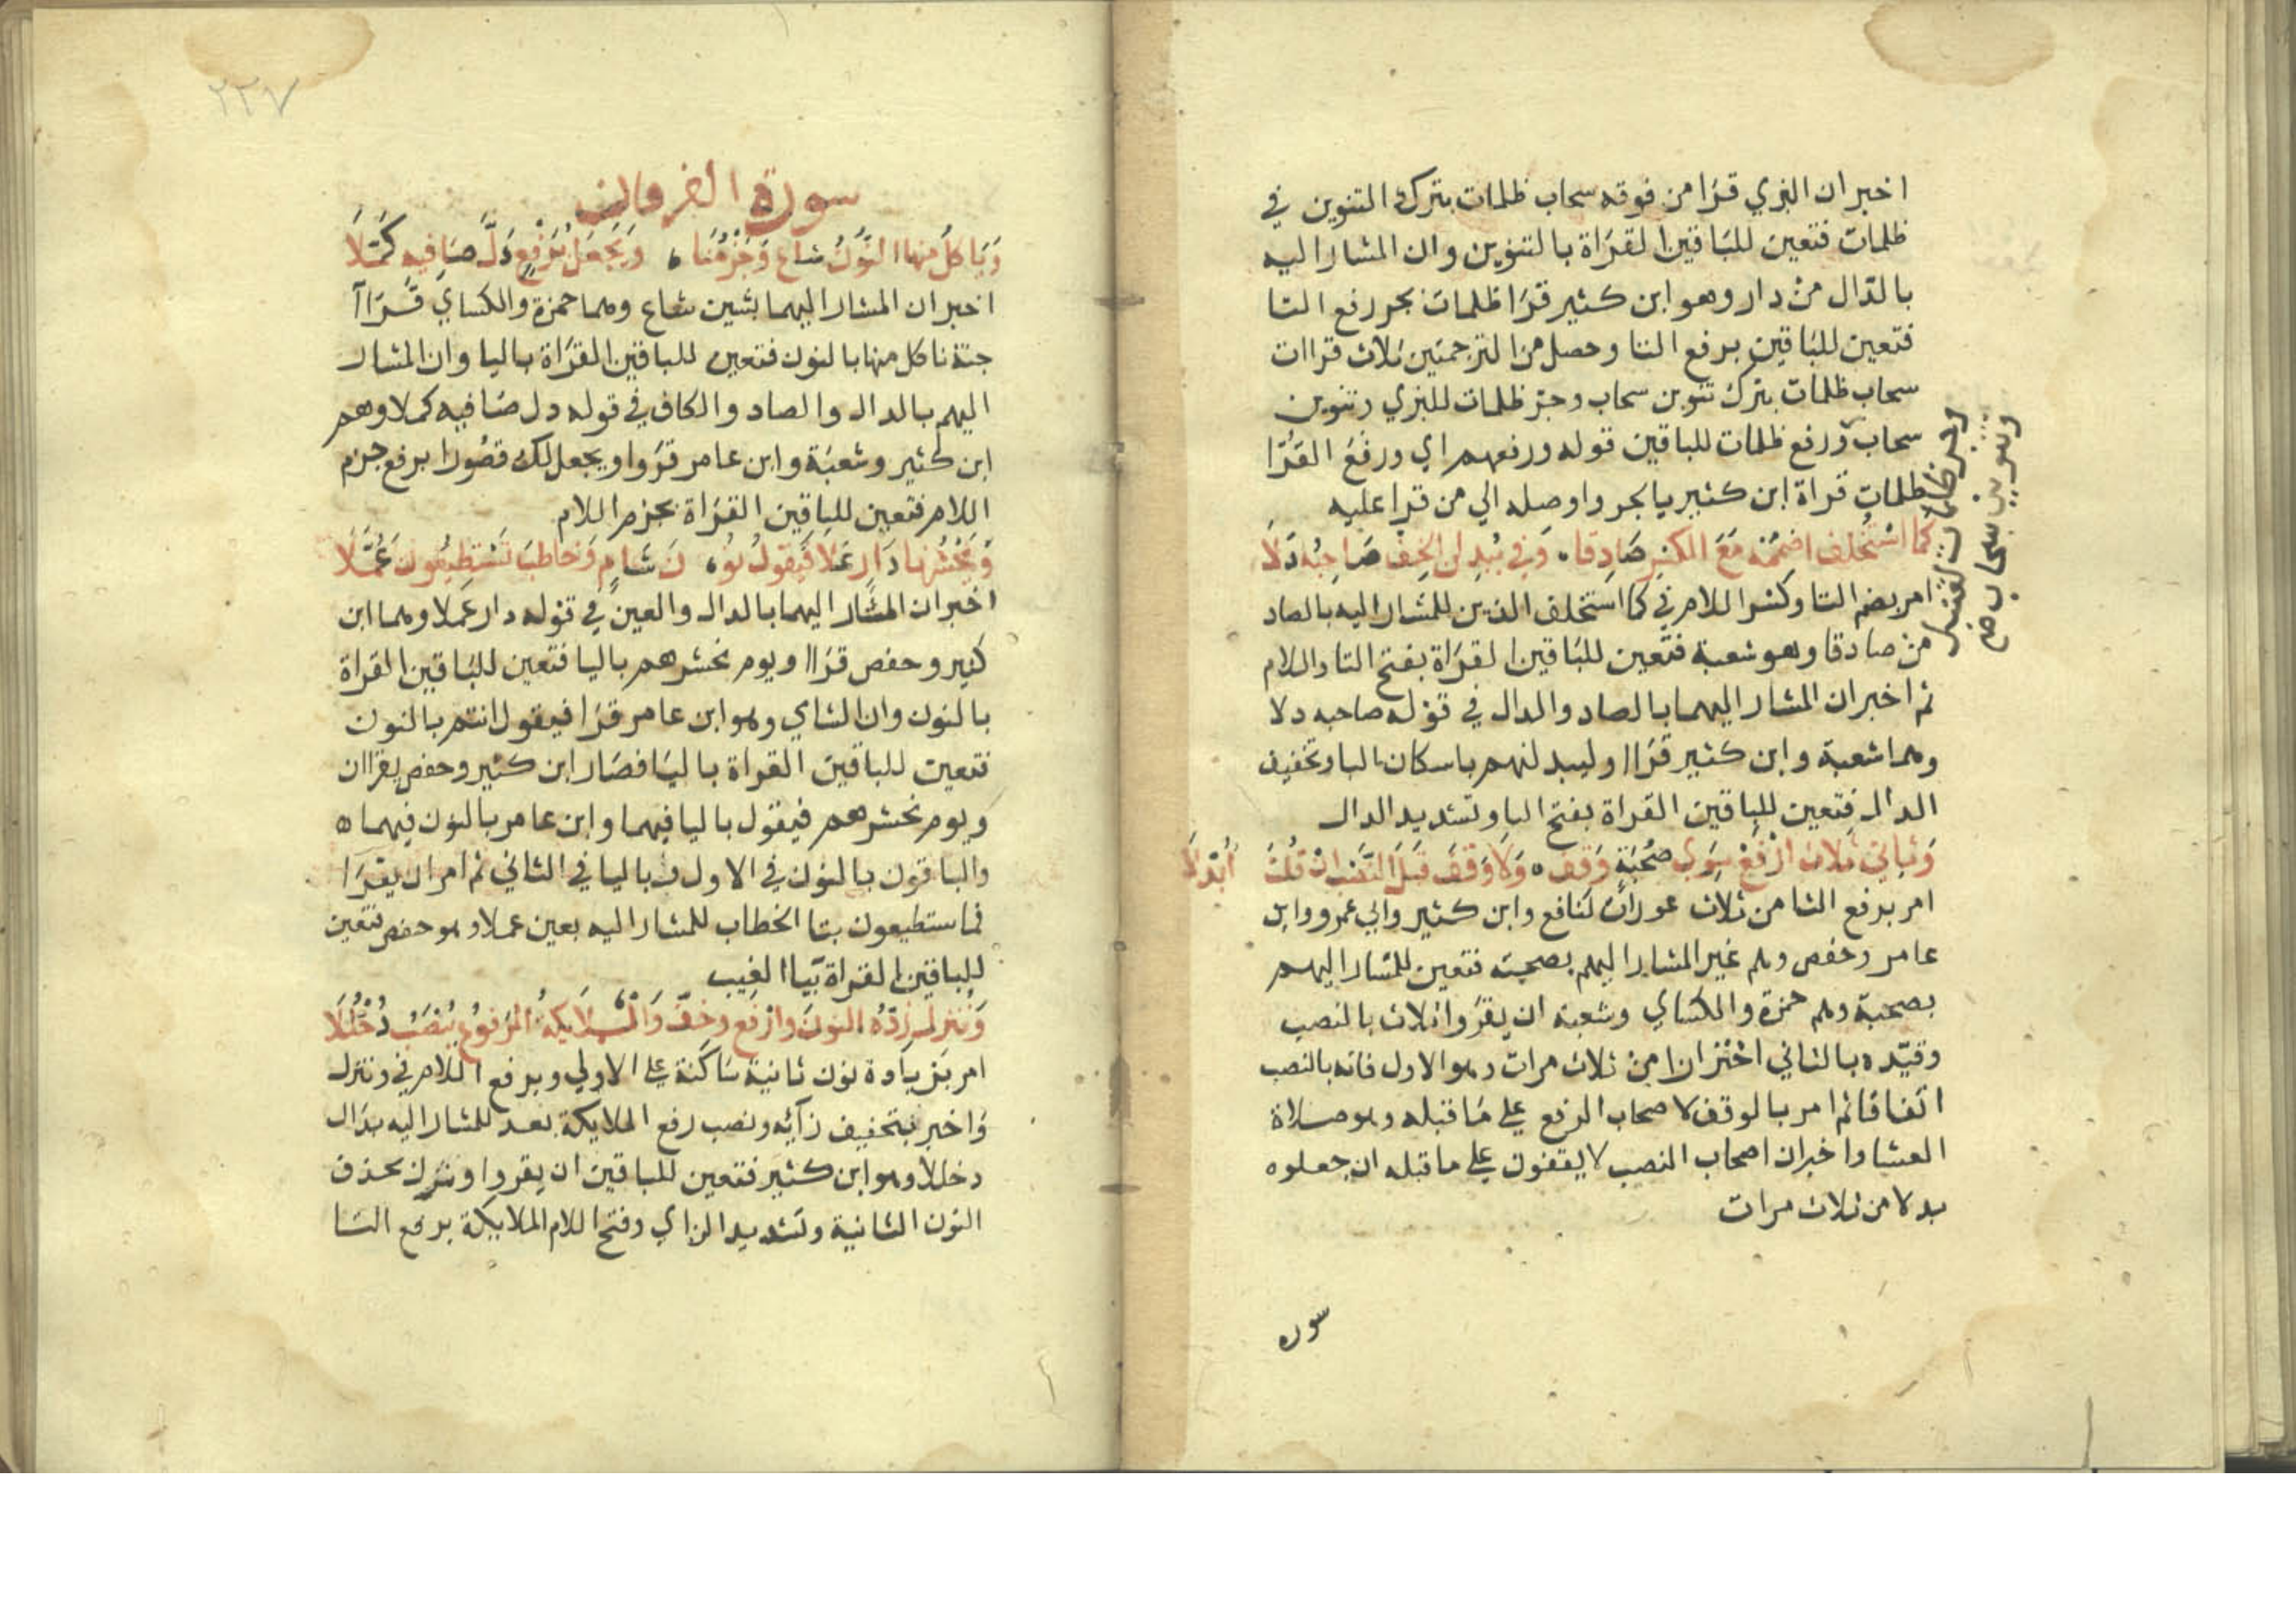 اخبر ان البزي قرا من فوقه سحاب ظلمات بترك التنوين في
ظلمات فتعين للباقين القراة بالتنوين وان المشار اليه
بالدال من دار وهو ابن كثير قرا ظلمات بجر رفع التا
فتعين للباقين برفع التا وحصل من الترجمتين ثلاث قراات
سحاب ظلمات بترك تنوين سحاب وجر ظلمات للبزي وتنوين
سحاب ورفع ظلمات للباقين قوله ورفعهم اي ورفع القرا
ظلمات قراة ابن كثير بالجر واوصله الي من قرا عليه
كما استخلف اضممه مع الكسر صادقا وفي يبدلن الخف صاحبه دلا
امر بضم التا وكسر اللام في كما استخلف الذين للمشار اليه بالصاد
من صادقا وهو شعبة فتعين للباقين القراة بفتح التا واللام
ثم اخبر ان المشار اليهما بالصاد والدال في قوله صاحبه دلا
وهما شعبة وابن كثير قراا وليبدلنهم باسكان البا وتخفيف
الدال فتعين للباقين القراة بفتح البا وتشديد الدال
وثاني ثلاث ارفع سوي صحبة وقف ولا وقف قبل النصب ان قلت ابدلا
امر برفع الثا من ثلاث عورات لنافع وابن كثير وابي عمرو وابن
عامر وحفص وهم غير المشار اليهم بصحبة فتعين للمشار اليهم
بصحبة وهم حمزة والكساي وشعبة ان يقروا ثلاث بالنصب
وقيده بالثاني احترازا من ثلاث مرات وهو الاول فانه بالنصب
اتفاقا ثم امر بالوقف لاصحاب الرفع علي ما قبله وهو صلاة
العشا واخبر ان اصحاب النصب لا يقفون علي ما قبله ان جعلوه
بدلا من ثلاث مرات
سوره
وتنوين سحاب
وجر ظلمات لقنبل
٢٢٧
سورة الفرقان
وياكل منها النون شاع وجزمنا ويجعل برفع دل صافيه كملا
اخبر ان المشار اليهما بشين شاع وهما حمزة والكساي قراا
جنة ناكل منها بالنون فتعين للباقين القراة باليا وان المشار
اليهم بالدال والصاد والكاف في قوله دل صافيه كملا وهم
ابن كثير وشعبة وابن عامر قروا ويجعل لك قصورا برفع جزم
اللام فتعين للباقين القراة بجزم اللام
ونحشرها دار علا فيقول نو ن شام وخاطب تستطيعون عملا
اخبر ان المشار اليهما بالدال والعين في قوله دار علا وهما ابن
كثير وحفص قراا ويوم نحشرهم باليا فتعين للباقين القراة
بالنون وان الشاي وهو ابن عامر قرا فيقول انتم بالنون
فتعين للباقين القراة باليا فصار ابن كثير وحفص يقراان
ويوم نحشرهم فيقول باليا فيهما وابن عامر بالنون فيهما ه
والباقون بالنون في الاول وباليا في الثاني ثم امر ان يقرا
فما ستطيعون بتا الخطاب للمشار اليه بعين عملا وهو حفص فتعين
للباقين القراة بيا الغيب
وننزل زده النون وارفع وخف والملايكة المرفوع ينصب دخللا
امر بزيادة نون ثانية ساكنة علي الاولي وبرفع اللام في وننزل
واخبر بتخفيف زايه ونصب رفع الملايكة بعد للمشار اليه بدال
دخللا وهو ابن كثير فتعين للباقين ان يقروا ونزل بحذف
النون الثانية وتشديد الزاي وفتح اللام الملايكة برفع التا